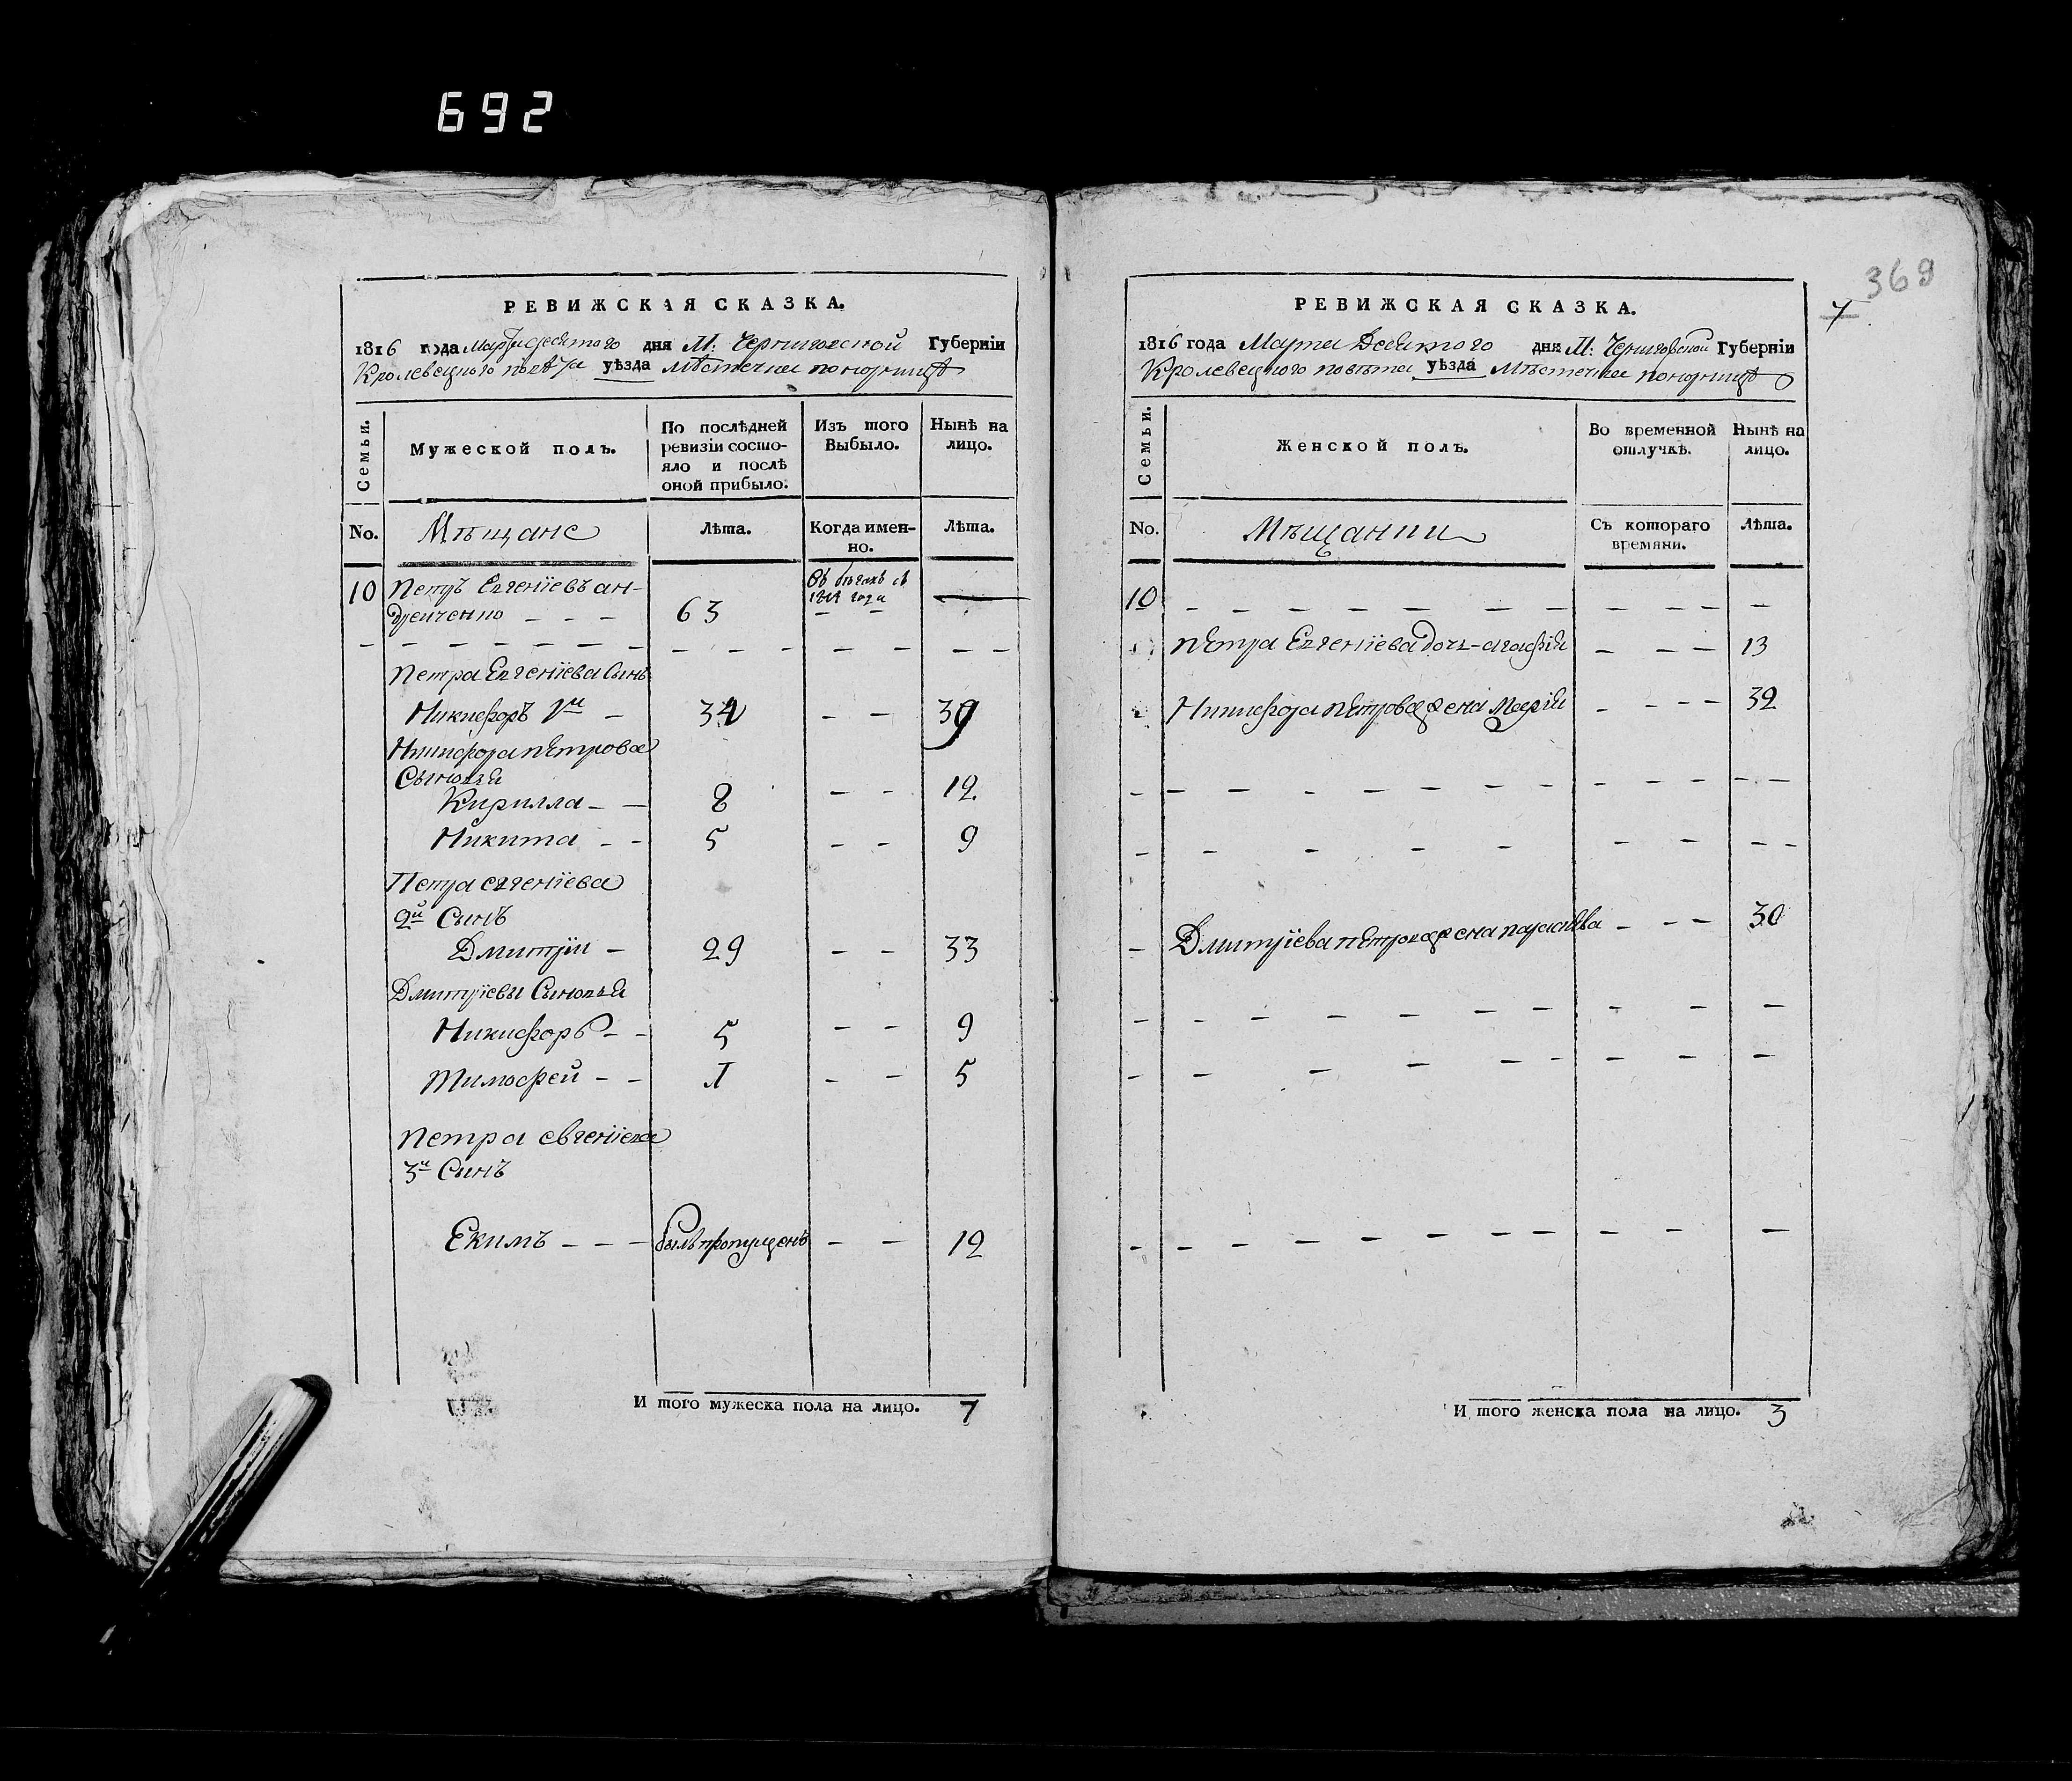 692
РЕВИЖСКАЯ СКАЗКА.
1816 года Марта девятого дня М: Черниговской Губернїи
Кролевецкого повѣта уѣзда мѣстечка понорницѣ
Семьи.
Мужеской полъ.
По послѣдней ревизїи состояло и послѣ оной прибыло.
Изъ того Выбыло.
Нынѣ на лицо.
No.
Мѣщане
Лѣта.
Когда именно.
Лѣта.
10 Петръ Евгенїевъ ан-
дрейченко - - - 63 Въ бегахъ съ 1814 года - -
Петра Евгенїева Сынъ
Никифоръ 1й - 34 - - 39
Никифора петрова
Сыновья
Кирилла - - 8 - - 12.
Никита - - 5 - - 9
Петра евгенїева
2й Сынъ
Дмитрїй - 29 - - 33
Дмитрїевы Сыновья
Никифоръ - - 5 - - 9
Тимофей - - 1 - - 5
Петра евгенїева
3й Сынъ
Екимъ - - - былъ пропущенъ - - 12
И того мужеска пола на лицо. 7
369
7
РЕВИЖСКАЯ СКАЗКА.
1816 года Марта Девятого дня М: Черниговской Губернїи
Кролевецкого повѣта уѣзда Мѣстечка понорницѣ
Семьи.
Женской полъ.
Во временной отлучкѣ.
Нынѣ на лицо.
No.
Мѣщанки
Съ котораго времяни.
Лѣта.
10 - - - - - - - - - - -
петра Евгенїева дочь - агафїя - - - 13
Никифора петрова жена Марїя - - - - 32
Дмитрїева петрова жена параскева - - - 30
И того женска пола на лицо. 3